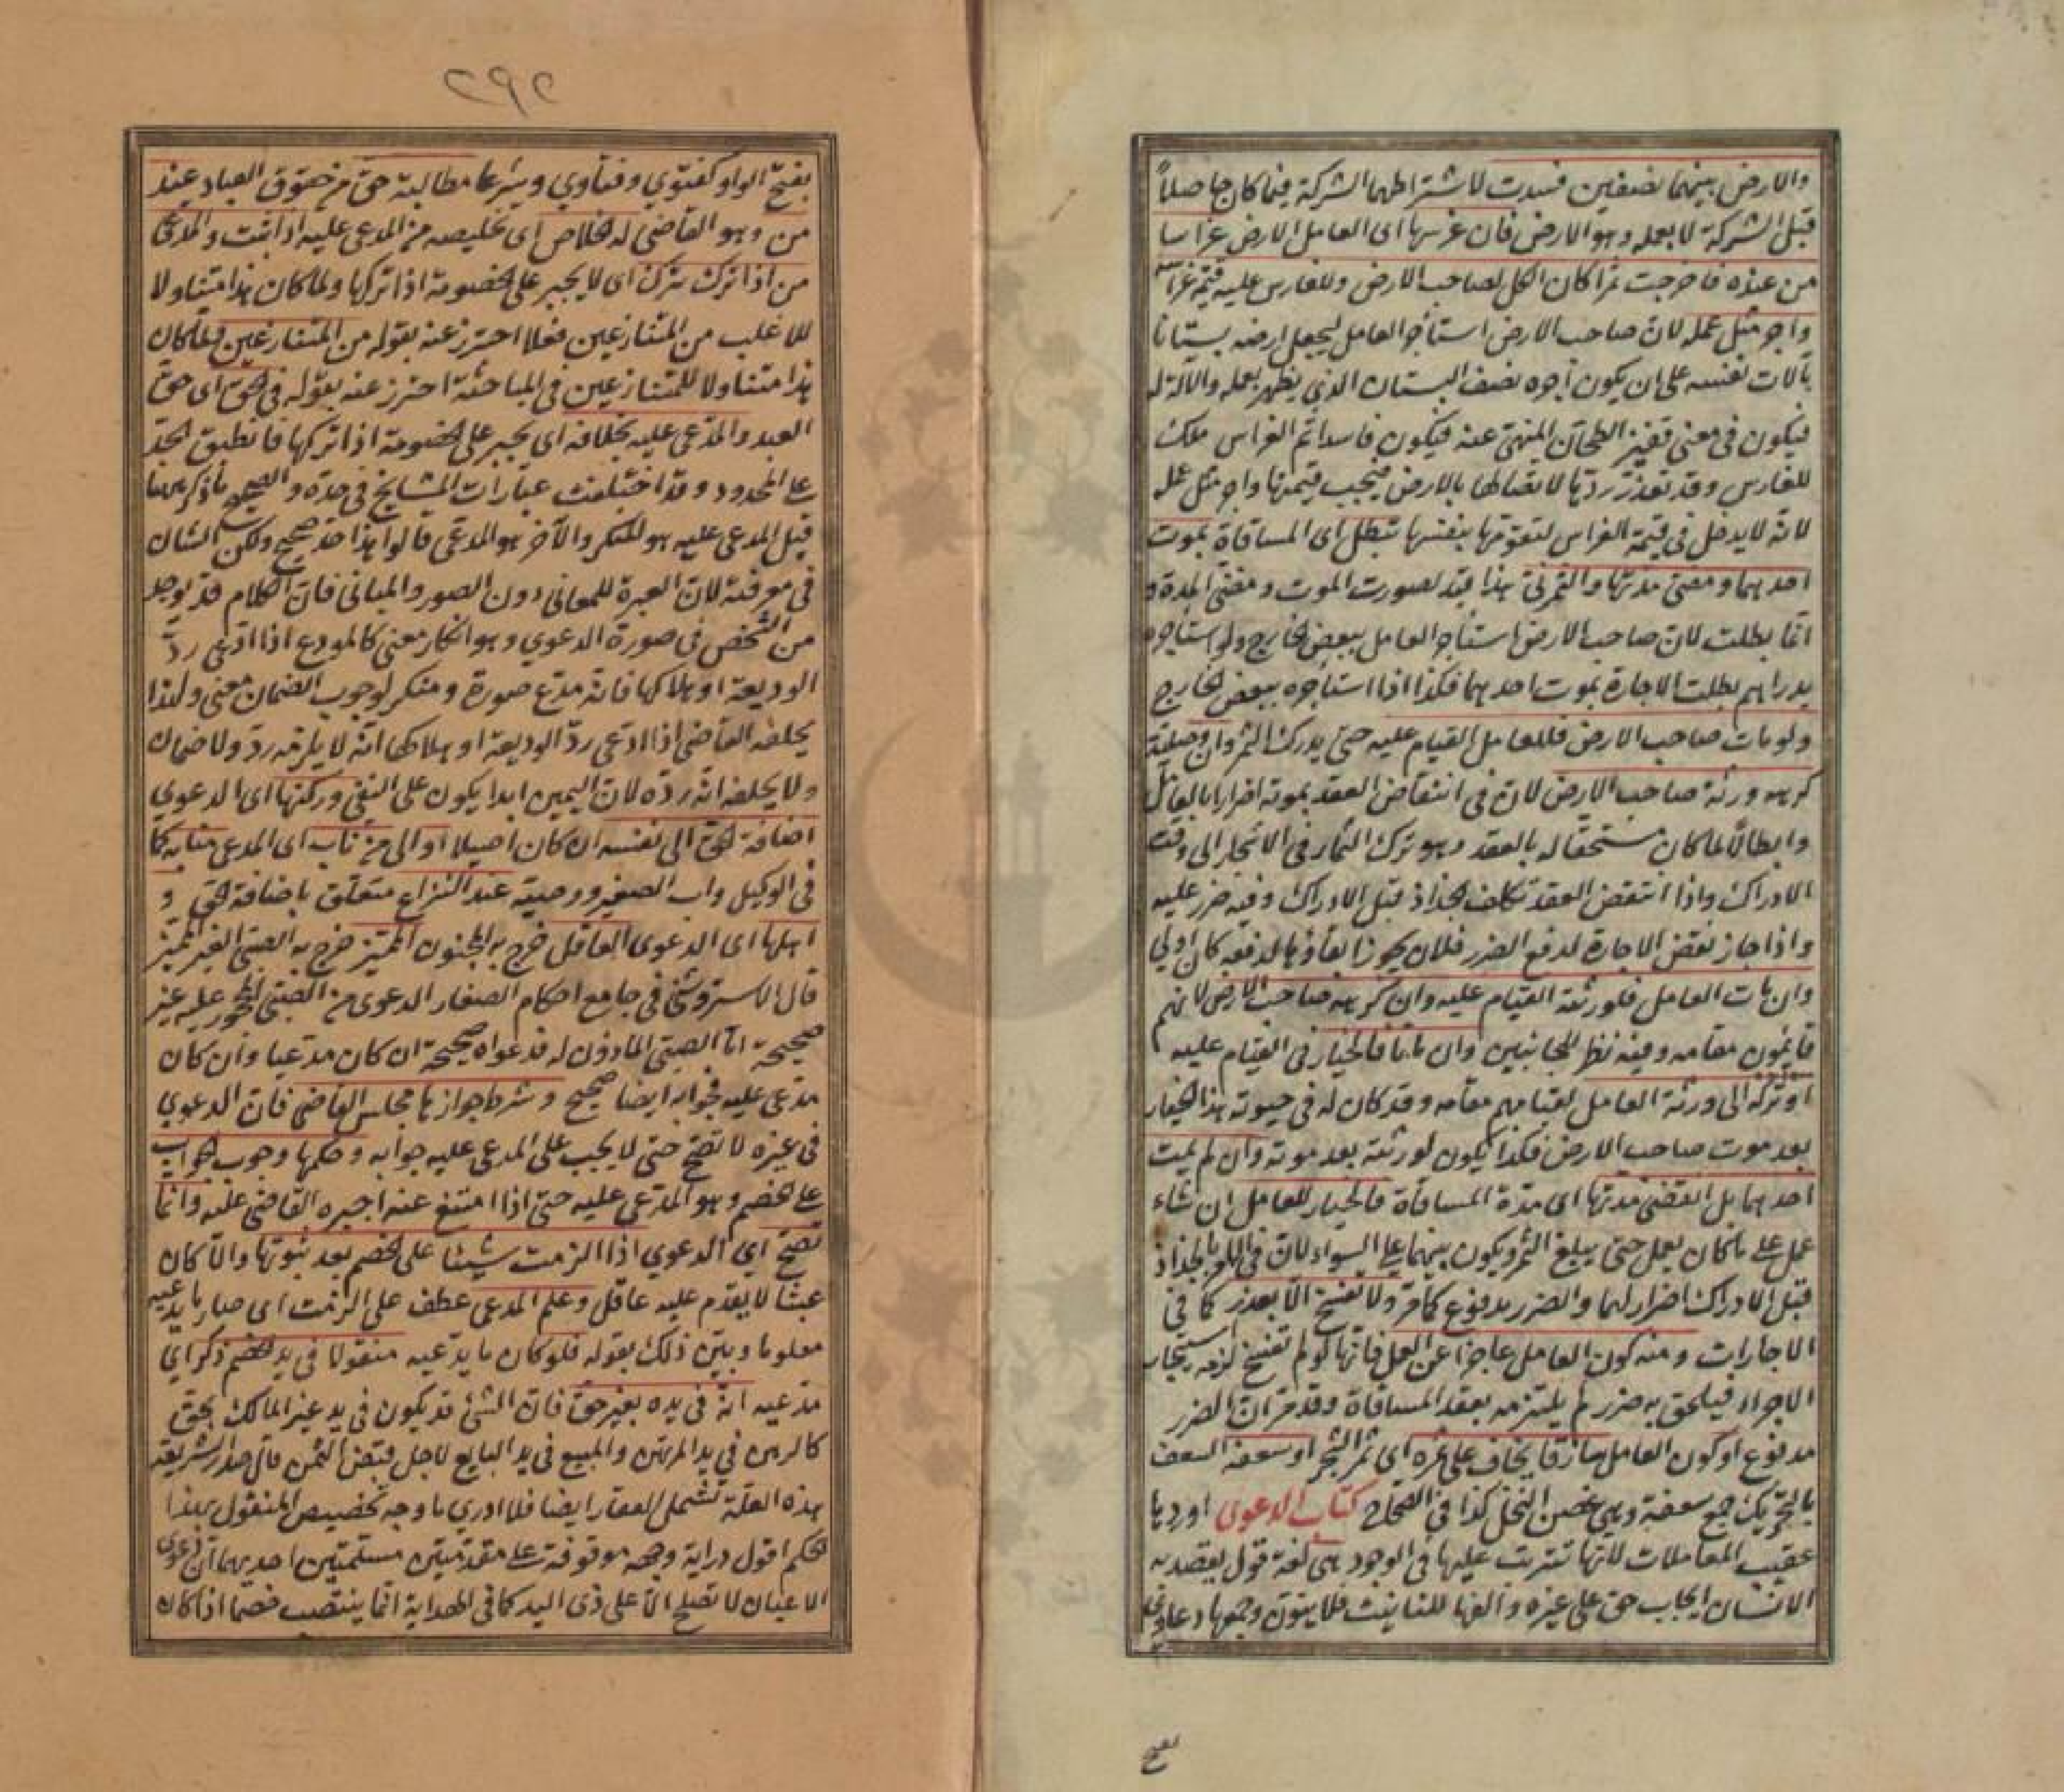 والارض بينهما نصفين فسدت لاشتراطهما الشركة فيما كان حاصلاً
قبل الشركة لا بعمله وهو الارض فان غرسها اى العامل الارض غراسا
من عنده فاخرجت ثمرا كان الكل لصاحب الارض وللغارس عليه قيمة غراسه
واجر مثل عمله لان صاحب الارض استأجر العامل ليجعل ارضه بستانا
بآلات نفسه على ان يكون اجره نصف البستان الذي يظهر بعمله والآلة له
فيكون فى معنى قفيز الطحان المنهى عنه فيكون فاسدا ثم الغراس ملك
للغارس وقد تعذر ردها لاتصالها بالارض فيجب قيمتها واجر مثل عمله
لانه لا يدخل فى قيمة الغراس لتقومها بنفسها تبطل اى المساقاة بموت
احدهما ومضى مدتها والثمر نئ هذا قيد لصورت الموت ومضى المدة و
انما بطلت لان صاحب الارض استأجر العامل ببعض الخارج ولو استأجره
بدراهم بطلت الاجارة بموت احدهما فكذا اذا استأجره ببعض الخارج
ولو مات صاحب الارض فللعامل القيام عليه حتى يدرك الثمر وان وصلية
كره ورثة صاحب الارض لان فى انتقاض العقد بموته اضرارا بالعامل
وابطالا لما كان مستحقا له بالعقد وهو ترك الثمار فى الاشجار الى وقت
الادراك واذا انتقض العقد تكلف الجذاذ قبل الادراك وفيه ضرر عليه
واذا جاز نقض الاجارة لدفع الضرر فلان يجوز ابقاؤها لدفعه كان اولي
وان مات العامل فلورثته القيام عليه وان كره صاحب الارض لانهم
قائمون مقامه وفيه نظر للجانبين وان ماتا فالخيار فى القيام عليه
او تركه الى ورثة العامل لقيامهم مقامه وقد كان له فى حيوته هذا الخيار
بعد موت صاحب الارض فكذا يكون لورثته بعد موته وان لم يمت
احدهما بل انقضى مدتها اى مدة المساقاة فالخيار للعامل ان شاء
عمل على ما كان يعمل حتى يبلغ الثمر ويكون بينهما على السواء لان فى الامر بالجذاذ
قبل الادراك اضرارا لهما والضرر مدفوع كما مر ولا تفسخ الا بعذر كما فى
الاجارات ومنه كون العامل عاجزا عن العمل فانها لو لم تفسخ لزمه استيجار
الاجراء فيلحق به ضرر لم يلتزمه بعقد المساقاة وقد مر ان الضرر
مدفوع او كون العامل سارقا يخاف على ثمره اى ثمر الشجر او سعفه السعف
بالتحريك جمع سعفة وهى غصن النخل كذا فى الصحاح كتاب الدعوى اوردها
عقيب المعاملات لانها تترتب عليها فى الوجود هى لغة قول يقصد به
الانسان ايجاب حق على غيره والفها للتانيث فلا ينون وجمعها دعاوى
بفتح
٢٩٢
بفتح الواو كفتوي وفتاوي وشرعا مطالبة حق من حقوق العباد عند
من وهو القاضى له الخلاص اى تخليصه من المدعى عليه اذا ثبت والمدعى
من اذا ترك ترك اى لا يجبر على الخصومة اذا تركها ولما كان هذا متناولا
للاغلب من المتنازعين فعلا احترز عنه بقوله من المتنازعين ولما كان
هذا متناولا للمتنازعين فى المباحثة احترز عنه بقوله فى الحق اى حق
العبد والمدعى عليه بخلافه اى يجبر على الخصومة اذا تركها فانطبق الحد
على المحدود وقد اختلفت عبارات المشايخ فى حده والصحيح ما ذكر ههنا
قيل المدعى عليه هو المنكر والآخر هو المدعى قالوا هذا حد صحيح ولكن الشان
فى معرفته لان العبرة للمعانى دون الصور والمبانى فان الكلام قد يوجد
من الشخص فى صورة الدعوي وهو انكار معنى كالمودع اذا ادعى رد
الوديعة او هلاكها فانه مدع صورة ومنكر لوجوب الضمان معنى ولهذا
يحلفه القاضى اذا ادعى رد الوديعة او هلاكها انه لا يلزمه رد ولا ضمان
ولا يحلفه انه رده لان اليمين ابدا يكون على النفى وركنها اى الدعوي
اضافة الحق الى نفسه ان كان اصيلا او الى من ناب اى المدعى منابه كما
فى الوكيل واب الصغير ووصيه عند النزاع متعلق باضافة الحق و
اهلها اى الدعوى العاقل خرج به المجنون المميز خرج به الصبى الغير المميز
قال الاستروشنى فى جامع احكام الصغار الدعوى من الصبى المحجور عليه غير
صحيحة اما الصبى الماذون له فدعواه صحيحة ان كان مدعيا وان كان
مدعى عليه فجوابه ايضا صحيح وشرط جوازها مجلس القاضى فان الدعوي
فى غيره لا تصح حتى لا يجب على المدعى عليه جوابه وحكمها وجوب الجواب
على الخصم وهو المدعى عليه حتى اذا امتنع عنه اجبره القاضى عليه وانما
تصح اي الدعوي اذا الزمت شيئا على الخصم بعد ثبوتها والا كان
عبثا لا يقدم عليه عاقل وعلم المدعى عطف على الزمت اى صار ما يدعيه
معلوما وبين ذلك بقوله فلو كان ما يدعيه منقولا فى يد الخصم ذكر اى
مدعيه انه فى يده بغير حق فان الشئ قد يكون فى يد غير المالك بحق
كالرهن فى يد المرتهن والمبيع فى يد البايع لاجل قبض الثمن قال صدر الشريعة
هذه العلة تشمل العقار ايضا فلا ادري ما وجه تخصيص المنقول بهذا
الحكم اقول دراية وجهه موقوفة على مقدمتين مسلمتين احديهما ان دعوى
الاعيان لا تصلح الا على ذى اليد كما فى الهداية انما ينتصب خصما اذا كان